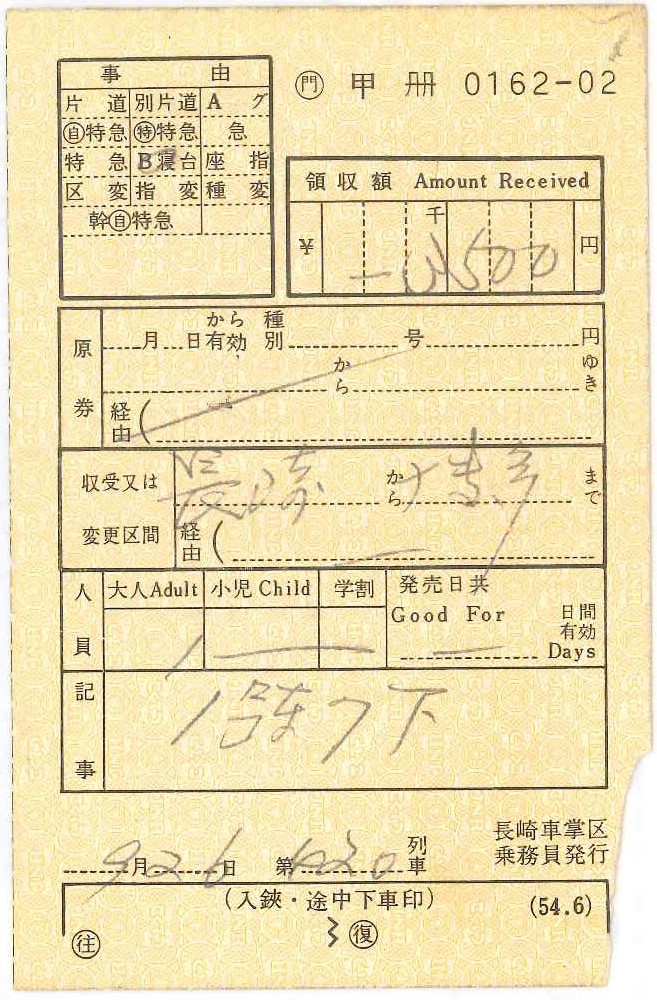 事 由
㊞ 甲 冊 0162-02
片道 別片道 Aグ
㊀特急 ㊕特急 急
特急 B寝台 座指
区変 指変 種変
幹㊀特急
領収額 Amount Received
千
¥ 500 円
から 種
月 日有効 別 号 円
原
券
から ゆき
経由(
収受又は
変更区間
長崎 から 博多 まで
経由(
人員
大人Adult 小児Child 学割 発売日共
Good For 日間
有効
1 Days
記事
1号車7下
長崎車掌区
乗務員発行
9月26日 第 列車
(入鋏・途中下車印) (54.6)
3
㊟ 復